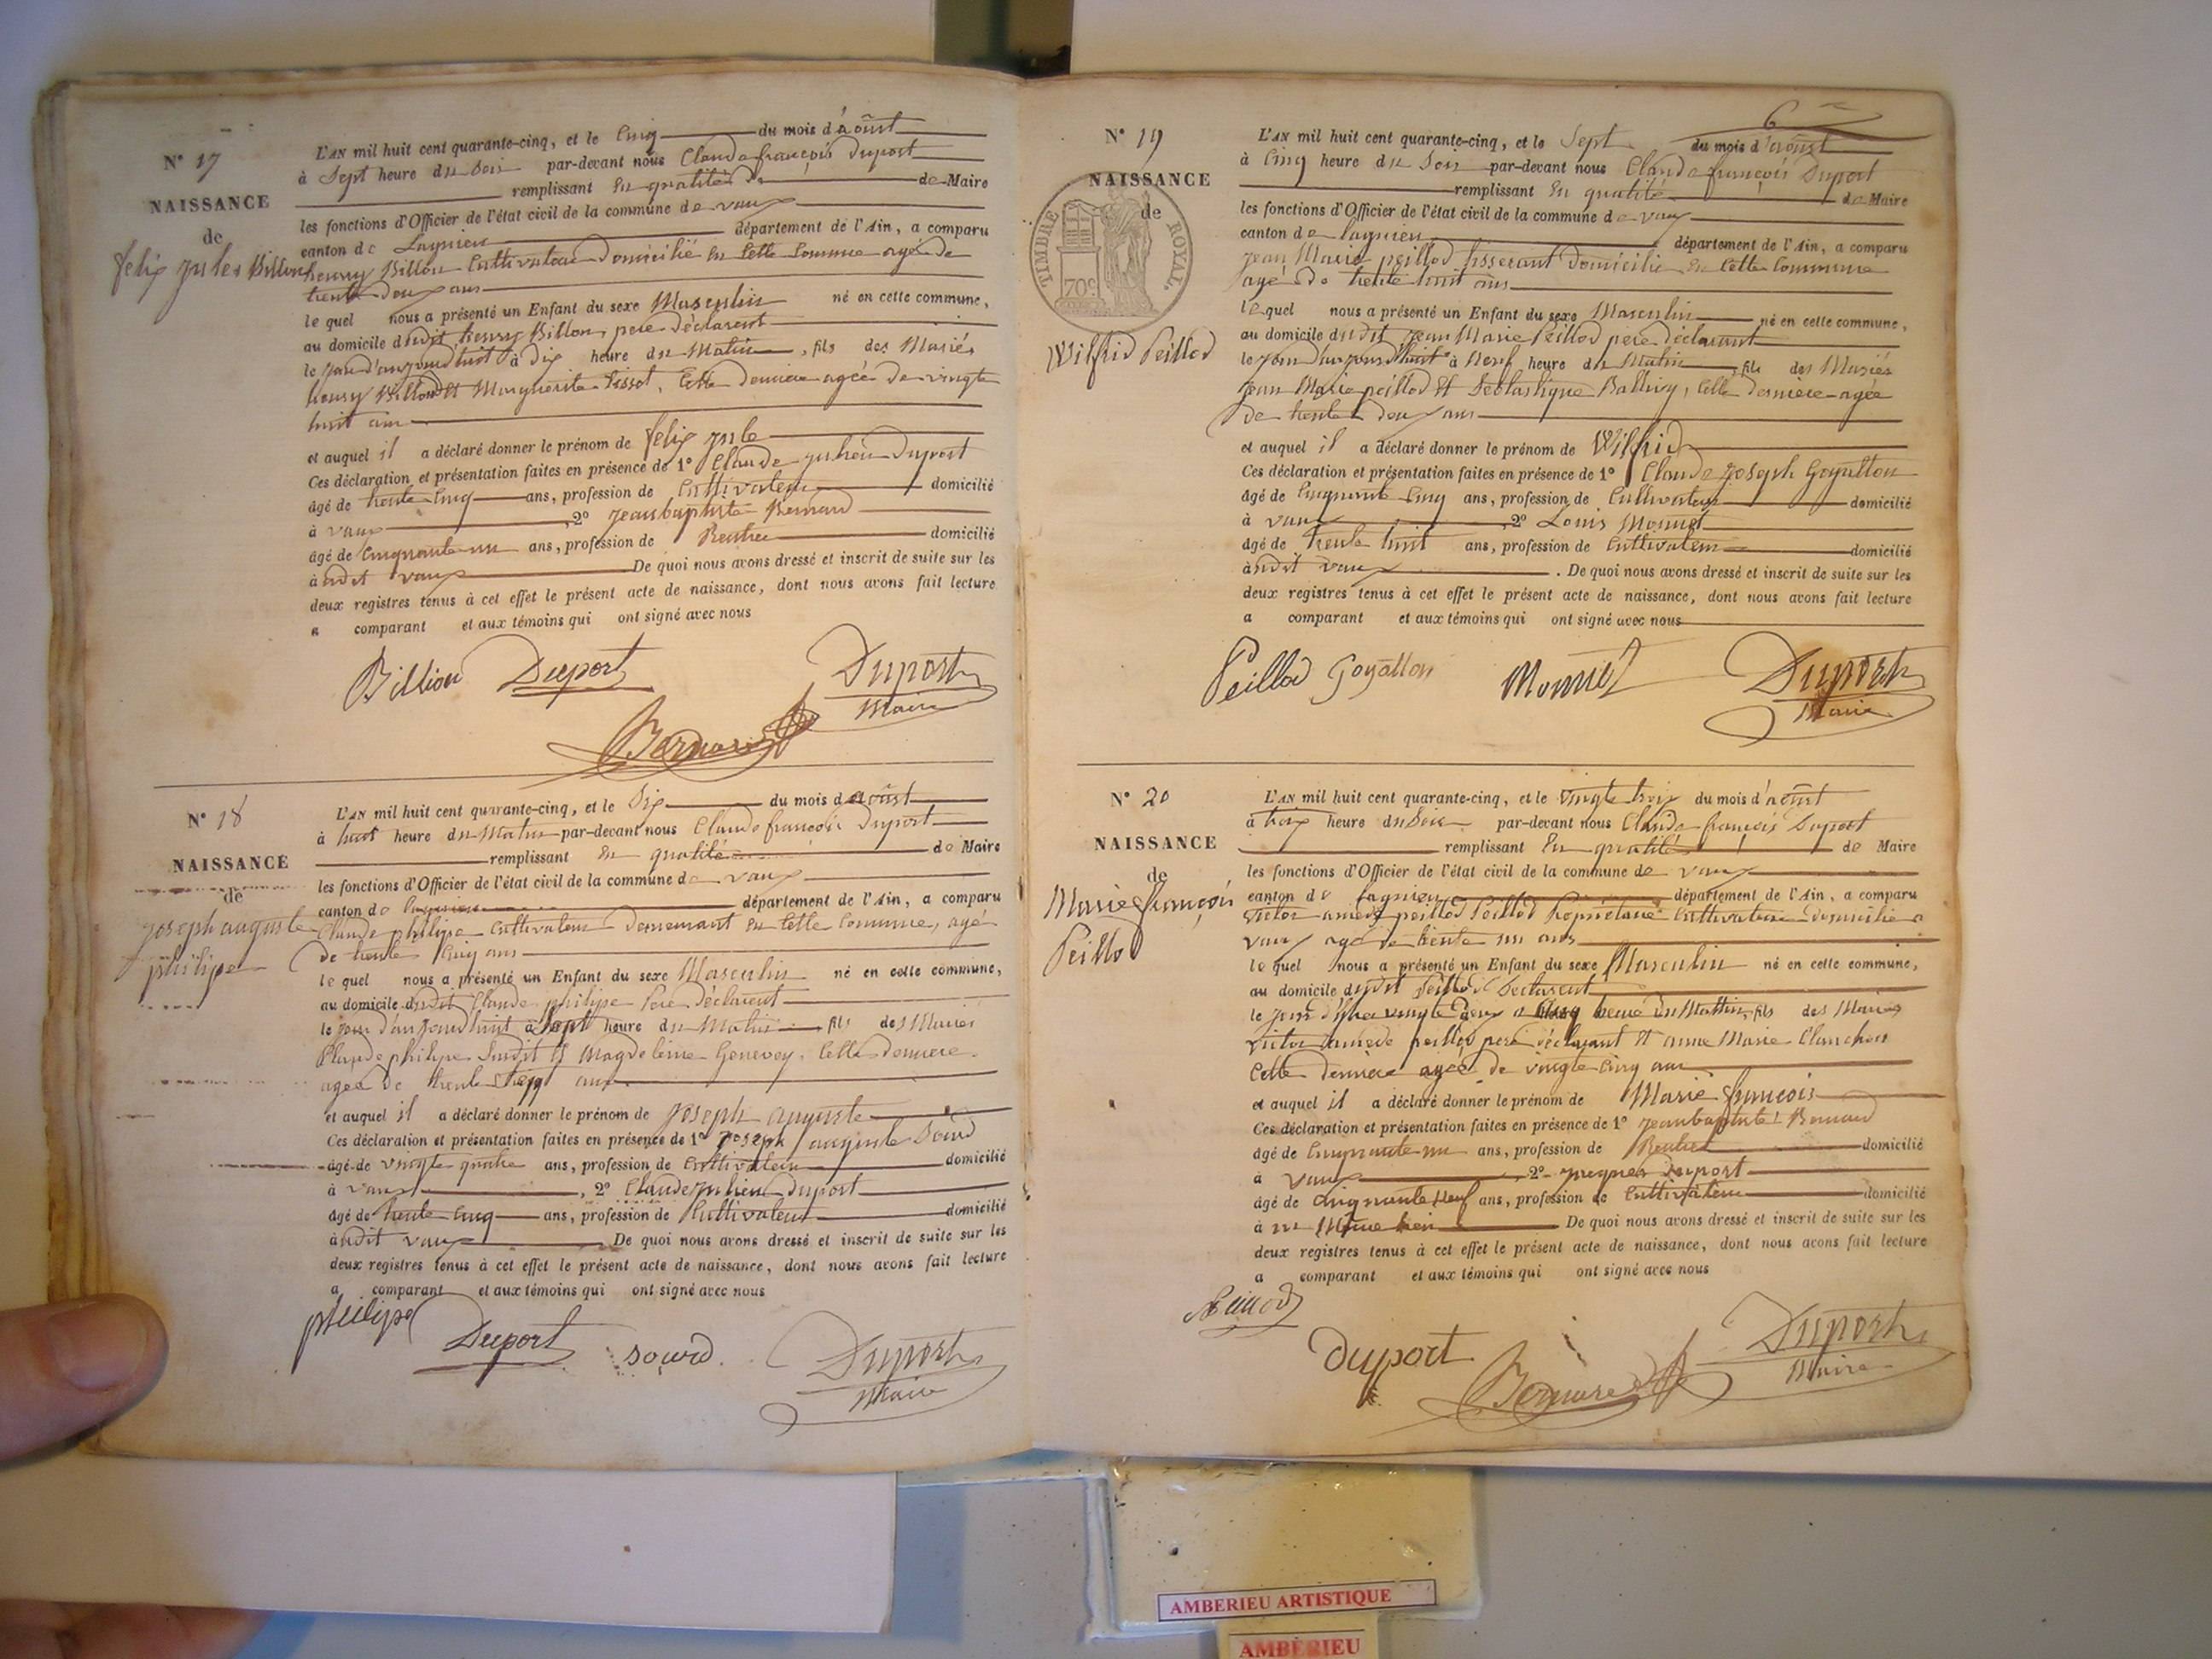 N° 17
NAISSANCE
de
felix jules Billon
L'AN mil huit cent quarante-cinq, et le cinq du mois d'août
à sept heure du soir par-devant nous Claude françois Duport
remplissant en qualité de Maire
les fonctions d'Officier de l'état civil de la commune de vaux
canton de Lagnieu département de l'Ain, a comparu
henry Billon Cultivateur domicilié en cette commune agé de
trente deux ans
le quel nous a présenté un Enfant du sexe Masculin né en cette commune,
au domicile dudit henry Billon, pere déclarent
le jour d'aujourdhuit à dix heure du Matin, fils des Mariés
henry Billon et Marguerite Tissot, cette derniere agée de vingte
huit ans
et auquel il a déclaré donner le prénom de felix jule
Ces déclaration et présentation faites en présence de 1° Claude julien Duport
âgé de trente cinq ans, profession de Cultivateur domicilié
à vaux, 2° jeanbaptiste Bernard
âgé de Cinquante un ans, profession de Rentier domicilié
à udit vaux De quoi nous avons dressé et inscrit de suite sur les
deux registres tenus à cet effet le présent acte de naissance, dont nous avons fait lecture
a comparant et aux témoins qui ont signé avec nous
Billion Duport Duport
Maire
Bernard
N° 18
NAISSANCE
de
joseph auguste
philipe
L'AN mil huit cent quarante-cinq, et le Six du mois d'août
à huit heure du Matin par-devant nous Claude françois Duport
remplissant en qualité de Maire
les fonctions d'Officier de l'état civil de la commune de vaux
canton de lagnieu département de l'Ain, a comparu
Claude philipe Cultivateur demeurant en cette commune, agé
de trente cinq ans
le quel nous a présenté un Enfant du sexe Masculin né en cette commune,
au domicile dudit Claude philipe Pere déclarent
le jour d'aujourdhuit à Sept heure du Matin fils des Mariés
Claude philipe Susdit et Magdeleine Genevey, cette derniere
agée de trente ans
et auquel il a déclaré donner le prénom de joseph auguste
Ces déclaration et présentation faites en présence de 1° joseph auguste Sourd
âgé de vingte quatre ans, profession de Cultivateur domicilié
à vaux, 2° Claude julien Duport
âgé de trente cinq ans, profession de Cultivateur domicilié
à udit vaux De quoi nous avons dressé et inscrit de suite sur les
deux registres tenus à cet effet le présent acte de naissance, dont nous avons fait lecture
a comparant et aux témoins qui ont signé avec nous
philipe Duport sourd Duport
Maire
6
N° 19
NAISSANCE
de
TIMBRE ROYAL.
70c
Wilfrid Peillod
L'AN mil huit cent quarante-cinq, et le Sept du mois d'août
à Cinq heure du Soir par-devant nous Claude françois Duport
remplissant en qualité de Maire
les fonctions d'Officier de l'état civil de la commune de vaux
canton de lagnieu département de l'Ain, a comparu
jean Marie peillod tisserant domicilié en cette commune
agé de trente huit ans
le quel nous a présenté un Enfant du sexe Masculin né en cette commune,
au domicile dudit jean Marie Peillod pere déclarant
le jour d'aujourdhuit à Neuf heure du Matin, fils des Mariés
jean Marie peillod et Scolastique Ballivy, cette derniere agée
de trente deux ans
et auquel il a déclaré donner le prénom de Wilfrid
Ces déclaration et présentation faites en présence de 1° Claude joseph Goyatton
âgé de Cinquante Cinq ans, profession de Cultivateur domicilié
à vaux, 2° Louis Monnet
âgé de trente huit ans, profession de Cultivateur domicilié
à udit vaux. De quoi nous avons dressé et inscrit de suite sur les
deux registres tenus à cet effet le présent acte de naissance, dont nous avons fait lecture
a comparant et aux témoins qui ont signé avec nous
Peillod Goyatton Monnet Duport
Maire
N° 20
NAISSANCE
de
Marie françois
Peillod
L'AN mil huit cent quarante-cinq, et le vingte trois du mois d'août
à trois heure du Soir par-devant nous Claude françois Duport
remplissant en qualité de Maire
les fonctions d'Officier de l'état civil de la commune de vaux
canton de lagnieu département de l'Ain, a comparu
victor amedé peillod Peillod Proprietaire Cultivateur domicilié a
vaux agé de trente un ans
le quel nous a présenté un Enfant du sexe Masculin né en cette commune,
au domicile dudit Peillod Declarent
le jour d'hier vingte deux a heure du Mattin, fils des Mariés
victor amedé peillod pere déclarant et anne Marie Planchon
cette derniere agée de vingte cinq ans
et auquel il a déclaré donner le prénom de Marie françois
Ces déclaration et présentation faites en présence de 1° jeanbaptiste Bernard
âgé de Cinquante un ans, profession de Rentier domicilié
à vaux, 2° Duport
âgé de Cinquante Neuf ans, profession de Cultivateur domicilié
à u Même lieu De quoi nous avons dressé et inscrit de suite sur les
deux registres tenus à cet effet le présent acte de naissance, dont nous avons fait lecture
a comparant et aux témoins qui ont signé avec nous
Peillod
duport Bernard Duport
Maire
AMBERIEU ARTISTIQUE
AMBÉRIEU